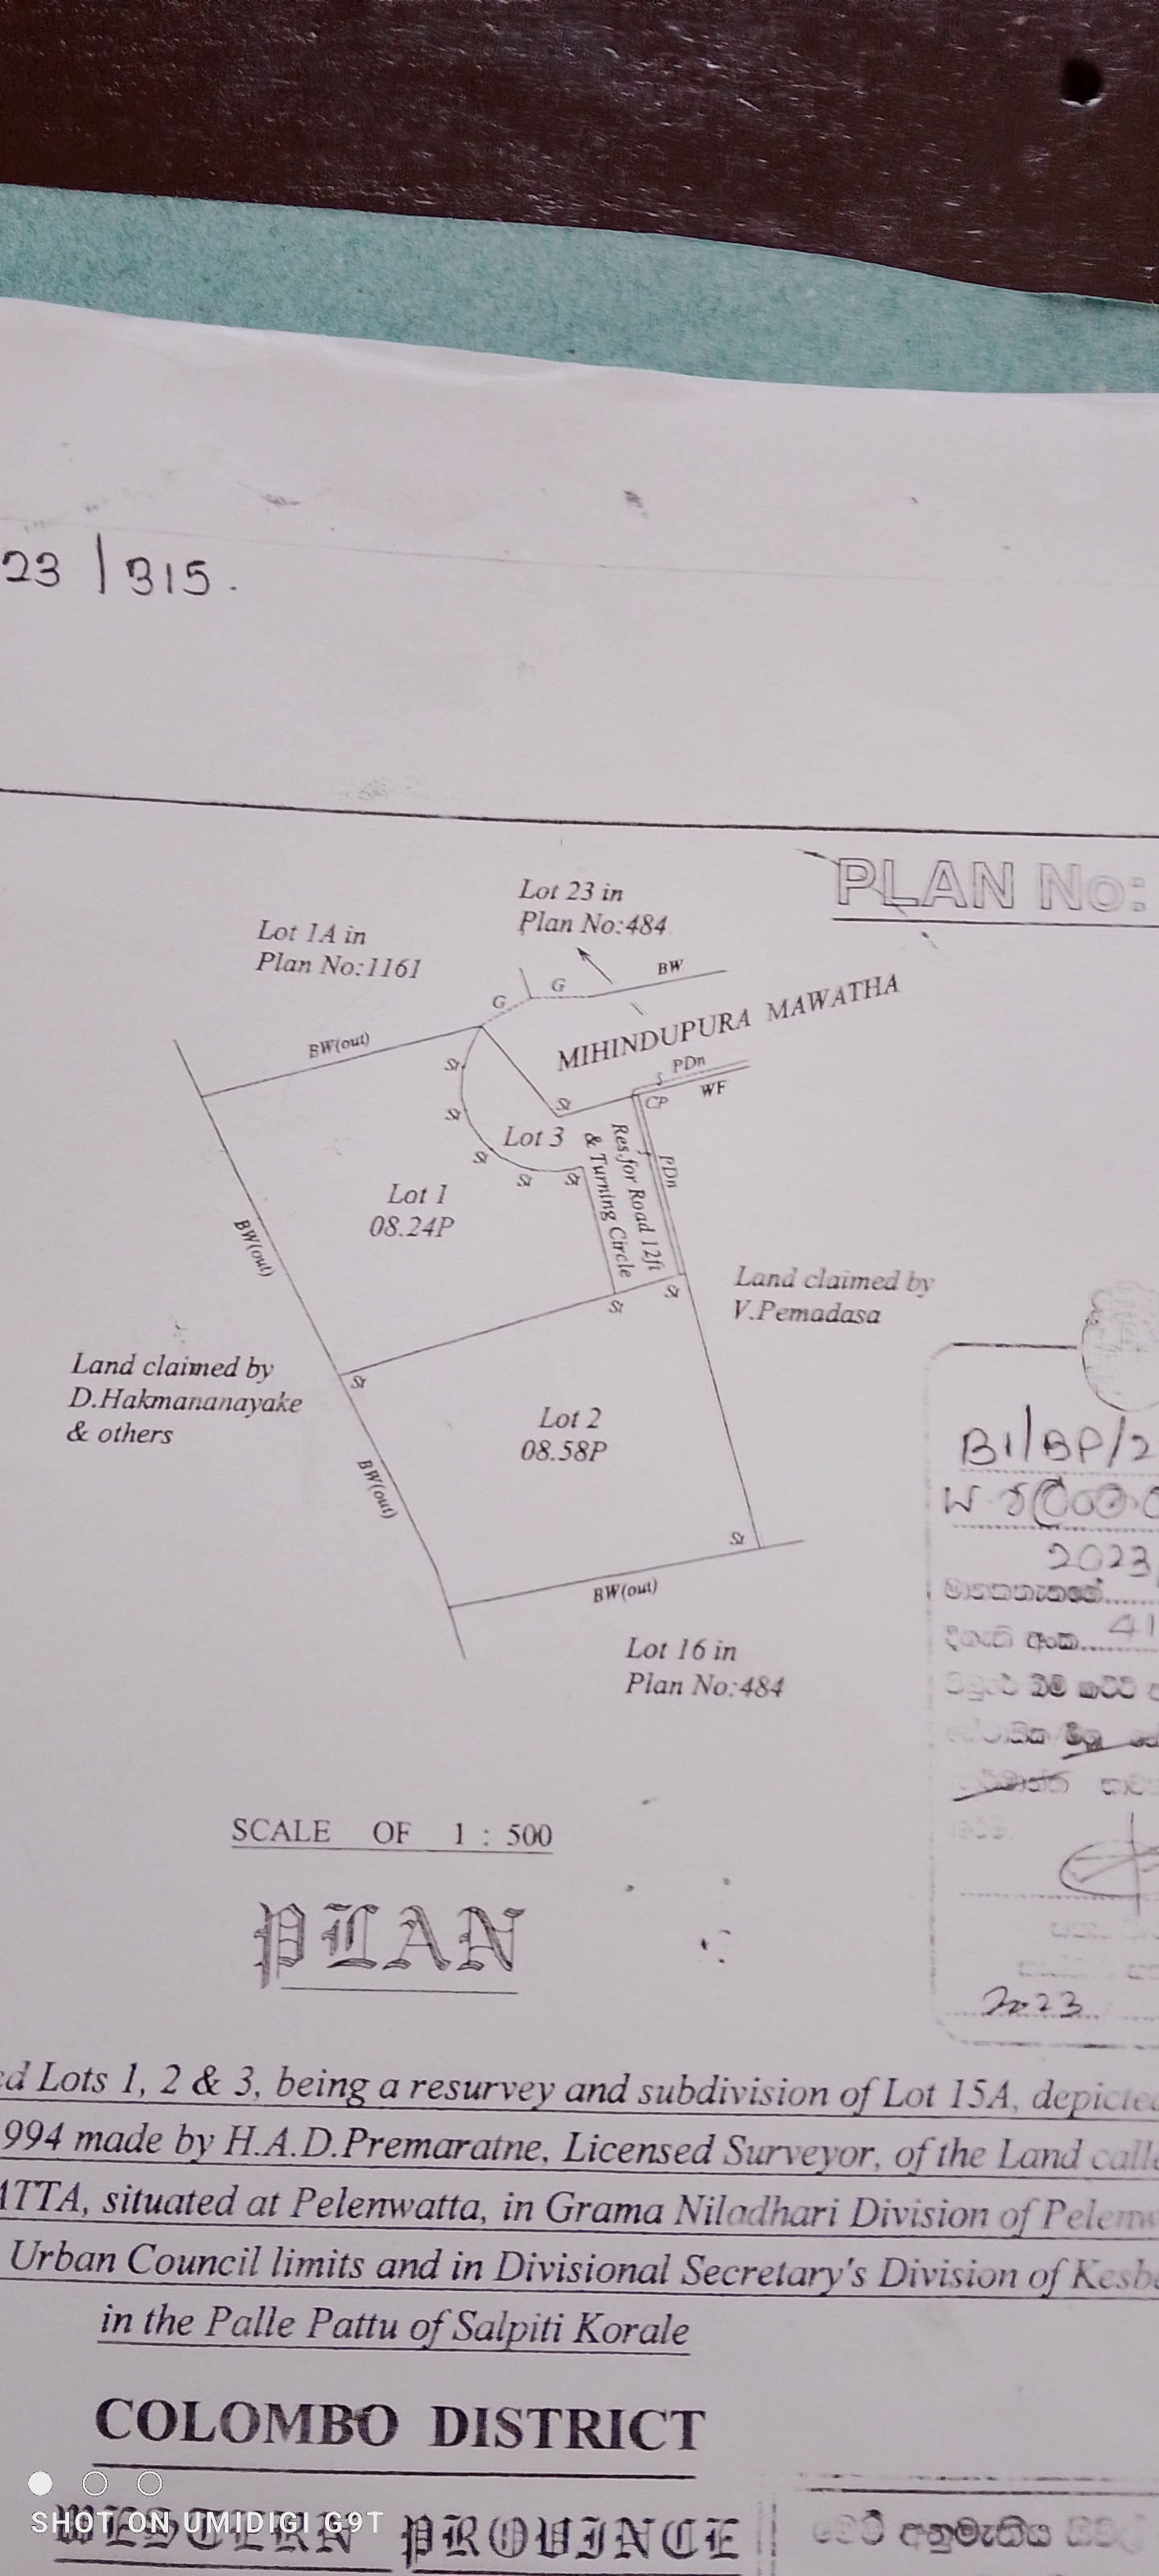 23 / 315.
PLAN No:
Lot 23 in
Plan No:484
Lot 1A in
Plan No:1161
G
G
BW
BW(out)
MIHINDUPURA MAWATHA
St
PDn
WF
St
CP
St
Lot 3
St
St
St
Res.for Road 12ft
& Turning Circle
PDn
Lot 1
08.24P
BW(out)
St
St
Land claimed by
V.Pemadasa
Land claimed by
D.Hakmananayake
& others
St
Lot 2
08.58P
BW(out)
St
BW(out)
Lot 16 in
Plan No:484
B1/BP/2
2023
අංක
41
SCALE OF 1 : 500
PLAN
2023
ed Lots 1, 2 & 3, being a resurvey and subdivision of Lot 15A, depicted
994 made by H.A.D.Premaratne, Licensed Surveyor, of the Land calle
ATTA, situated at Pelenwatta, in Grama Niladhari Division of Pelenw
Urban Council limits and in Divisional Secretary's Division of Kesbe
in the Palle Pattu of Salpiti Korale
COLOMBO DISTRICT
WESTERN PROVINCE
අනුමැතිය
SHOT ON UMIDIGI G9T